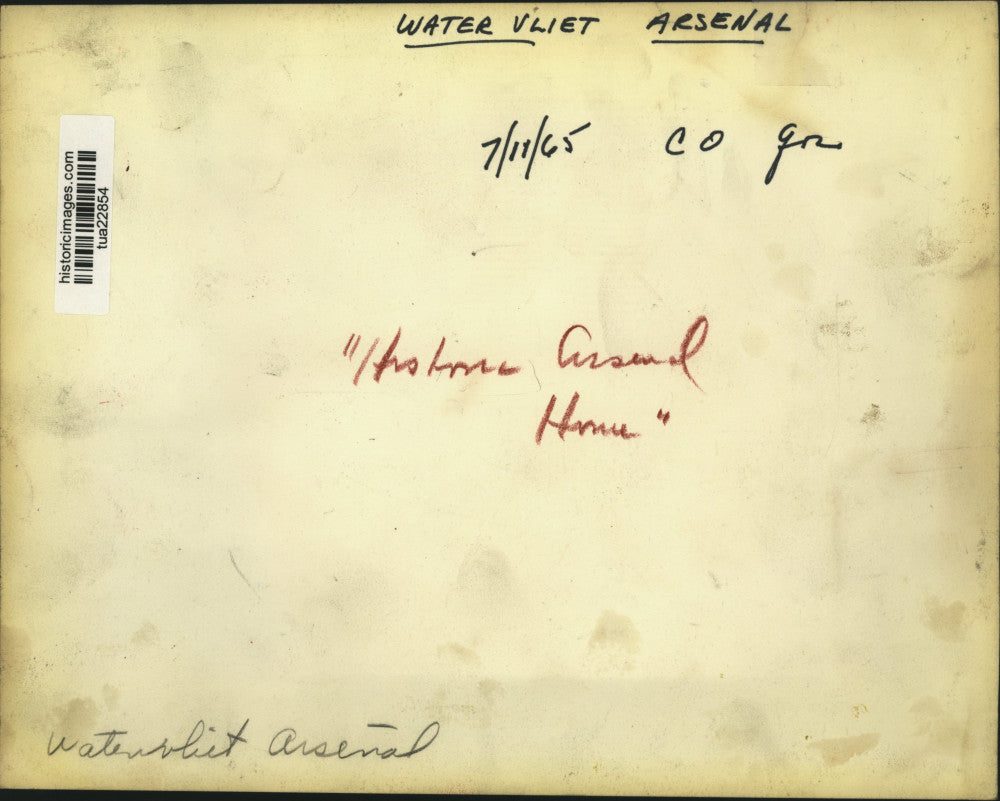 WATER VLIET ARSENAL
7/11/65 CO
historicimages.com
tua22854
"Historic Arsenal
Home"
Watervliet Arsenal